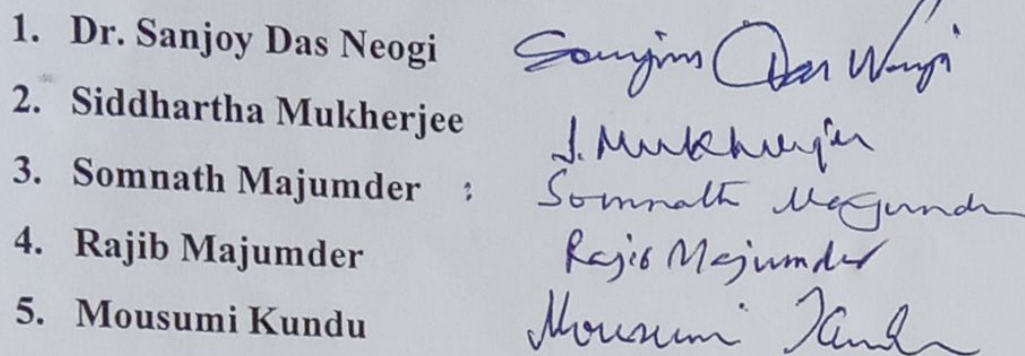 1. Dr. Sanjoy Das Neogi Sanjoy Das Neogi
2. Siddhartha Mukherjee S. Mukherjee
3. Somnath Majumder : Somnath Majumder
4. Rajib Majumder Rajib Majumder
5. Mousumi Kundu Mousumi Kundu